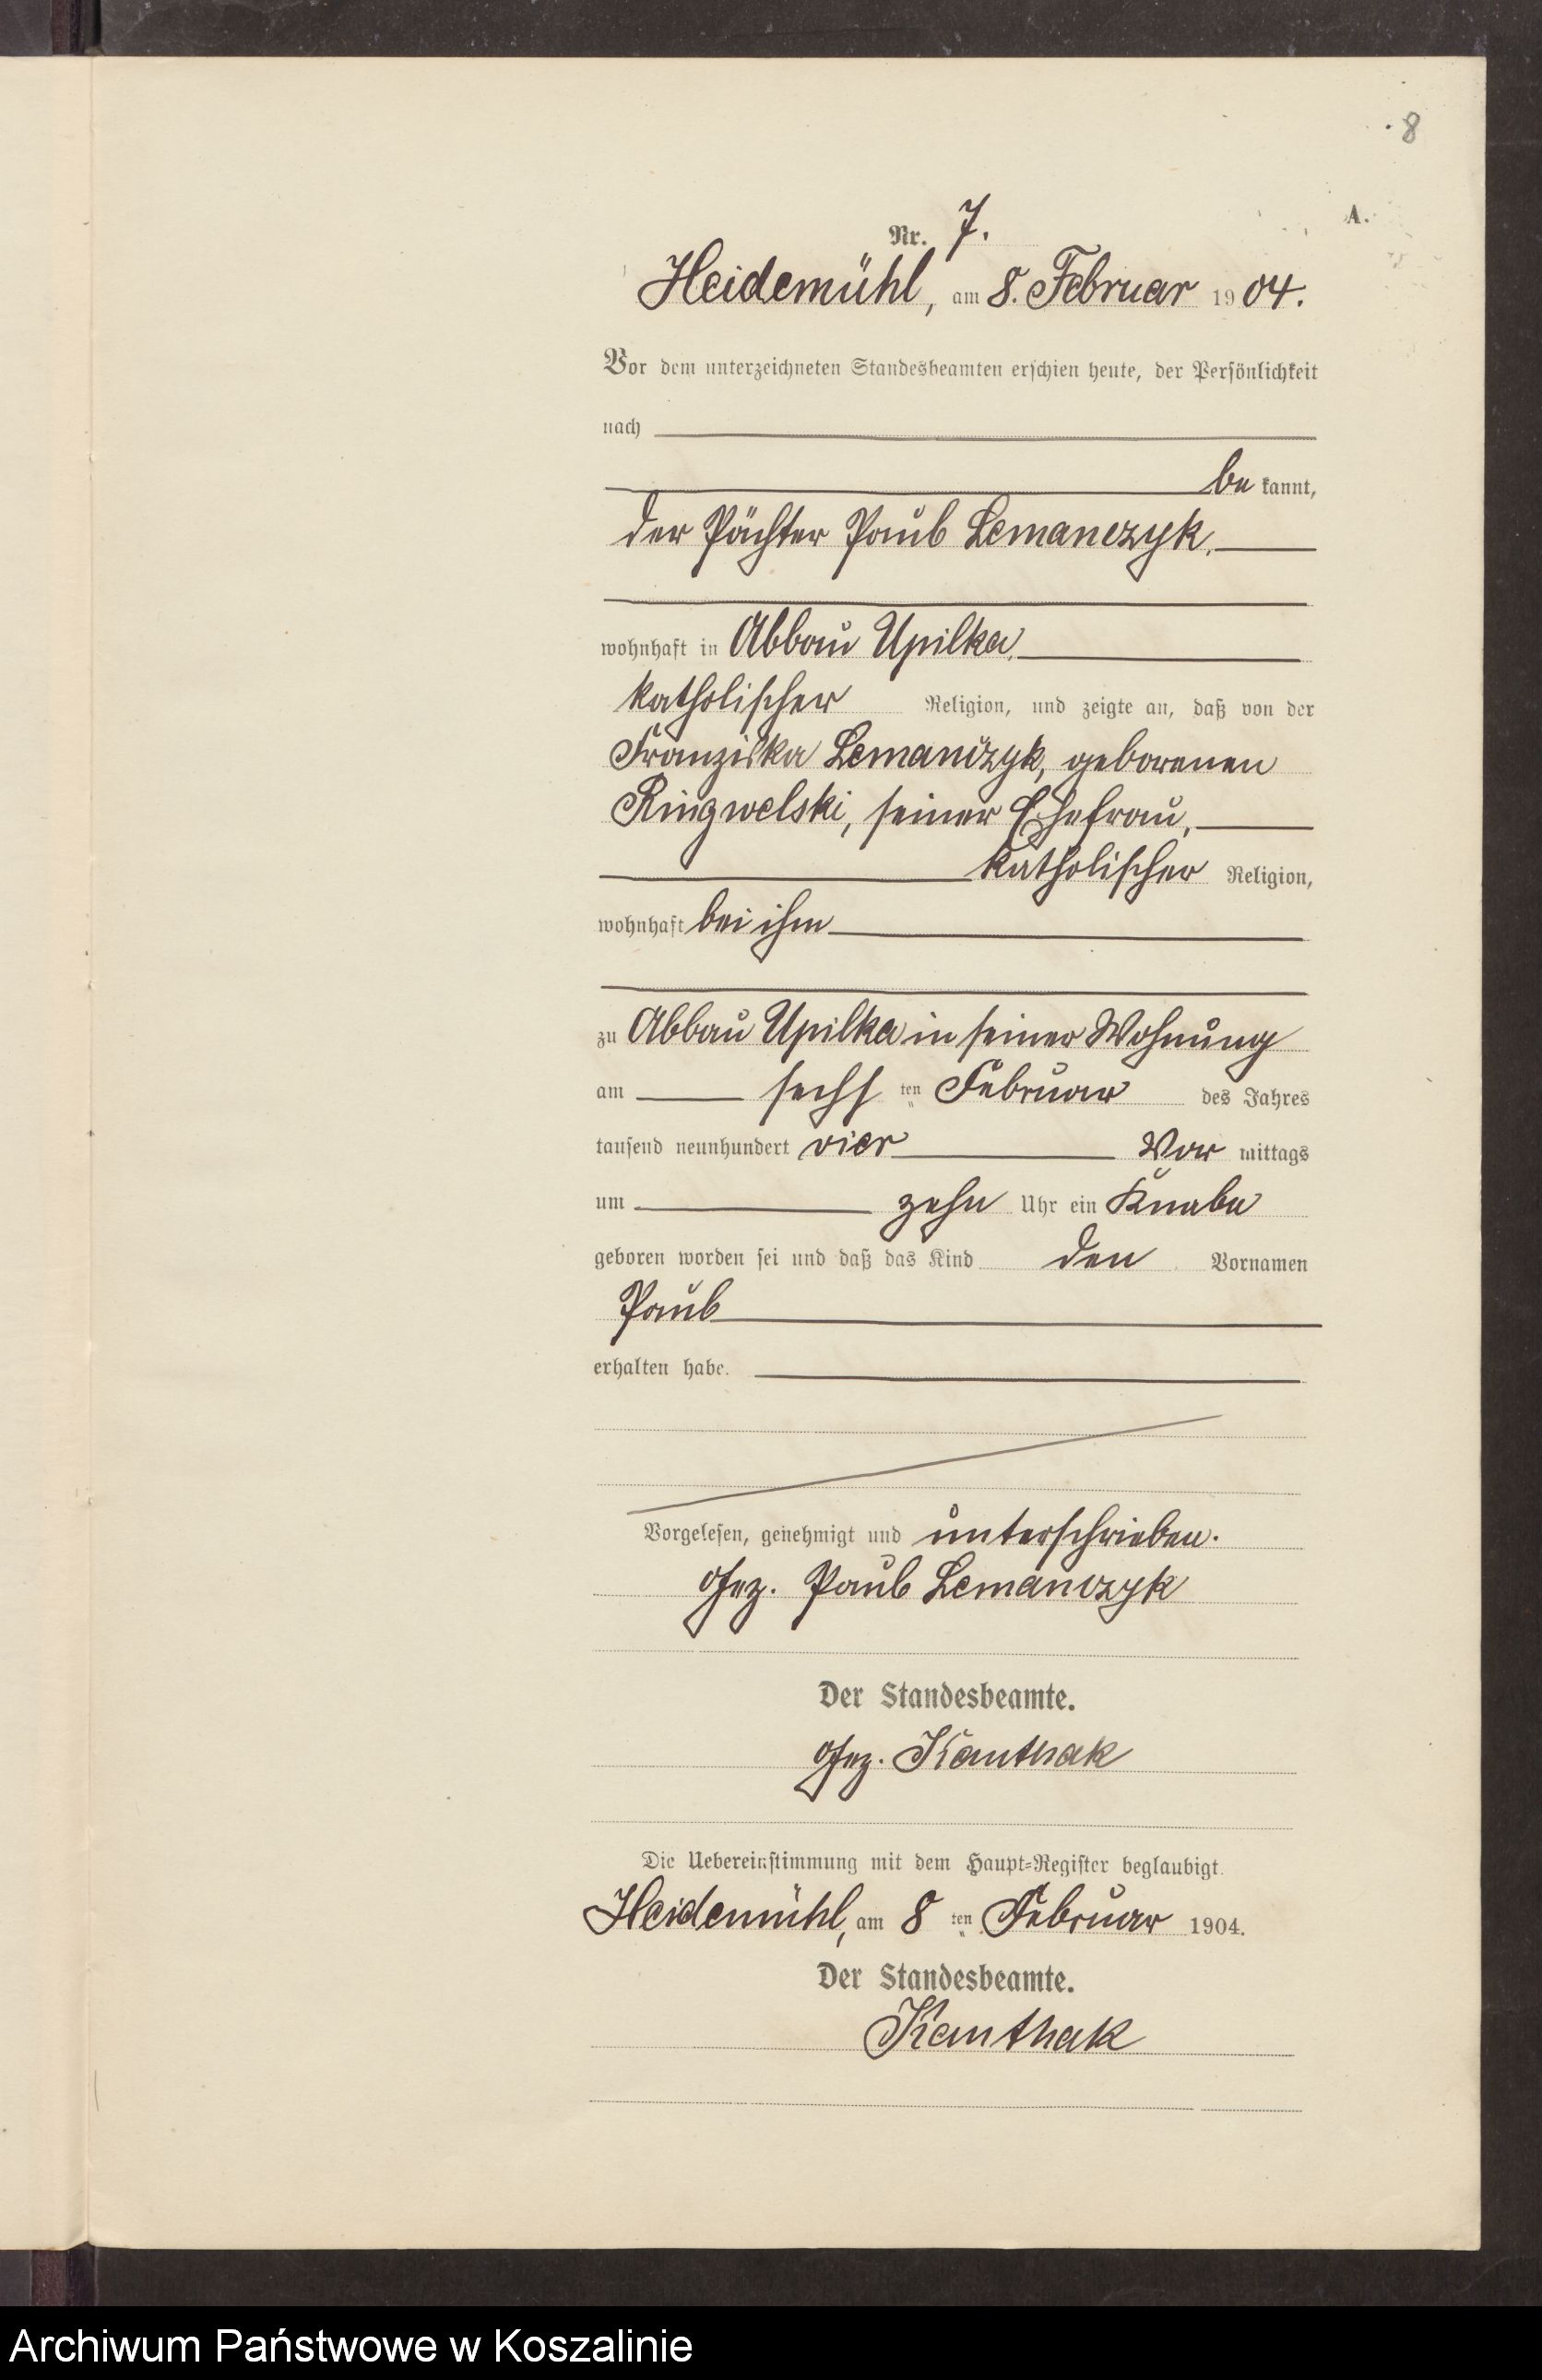 8
A.
Nr. 7.
Heidemühl, am 8. Februar 1904.
Vor dem unterzeichneten Standesbeamten erschien heute, der Persönlichkeit
nach
be kannt,
der Pächter Paul Lemanczyk,
wohnhaft in Abbau Upilka,
katholischer Religion, und zeigte an, daß von der
Franziska Lemanczyk, geborenen
Ringwelski, seiner Ehefrau,
katholischer Religion,
wohnhaft bei ihm
zu Abbau Upilka in seiner Wohnung
am sechsten Februar des Jahres
tausend neunhundert vier Vor mittags
um zehn Uhr ein Knabe
geboren worden sei und daß das Kind den Vornamen
Paul
erhalten habe.
Vorgelesen, genehmigt und unterschrieben.
Gez. Paul Lemanczyk
Der Standesbeamte.
Gez. Kanthak
Die Uebereinstimmung mit dem Haupt-Register beglaubigt.
Heidemühl, am 8ten Februar 1904.
Der Standesbeamte.
Kanthak
Archiwum Państwowe w Koszalinie